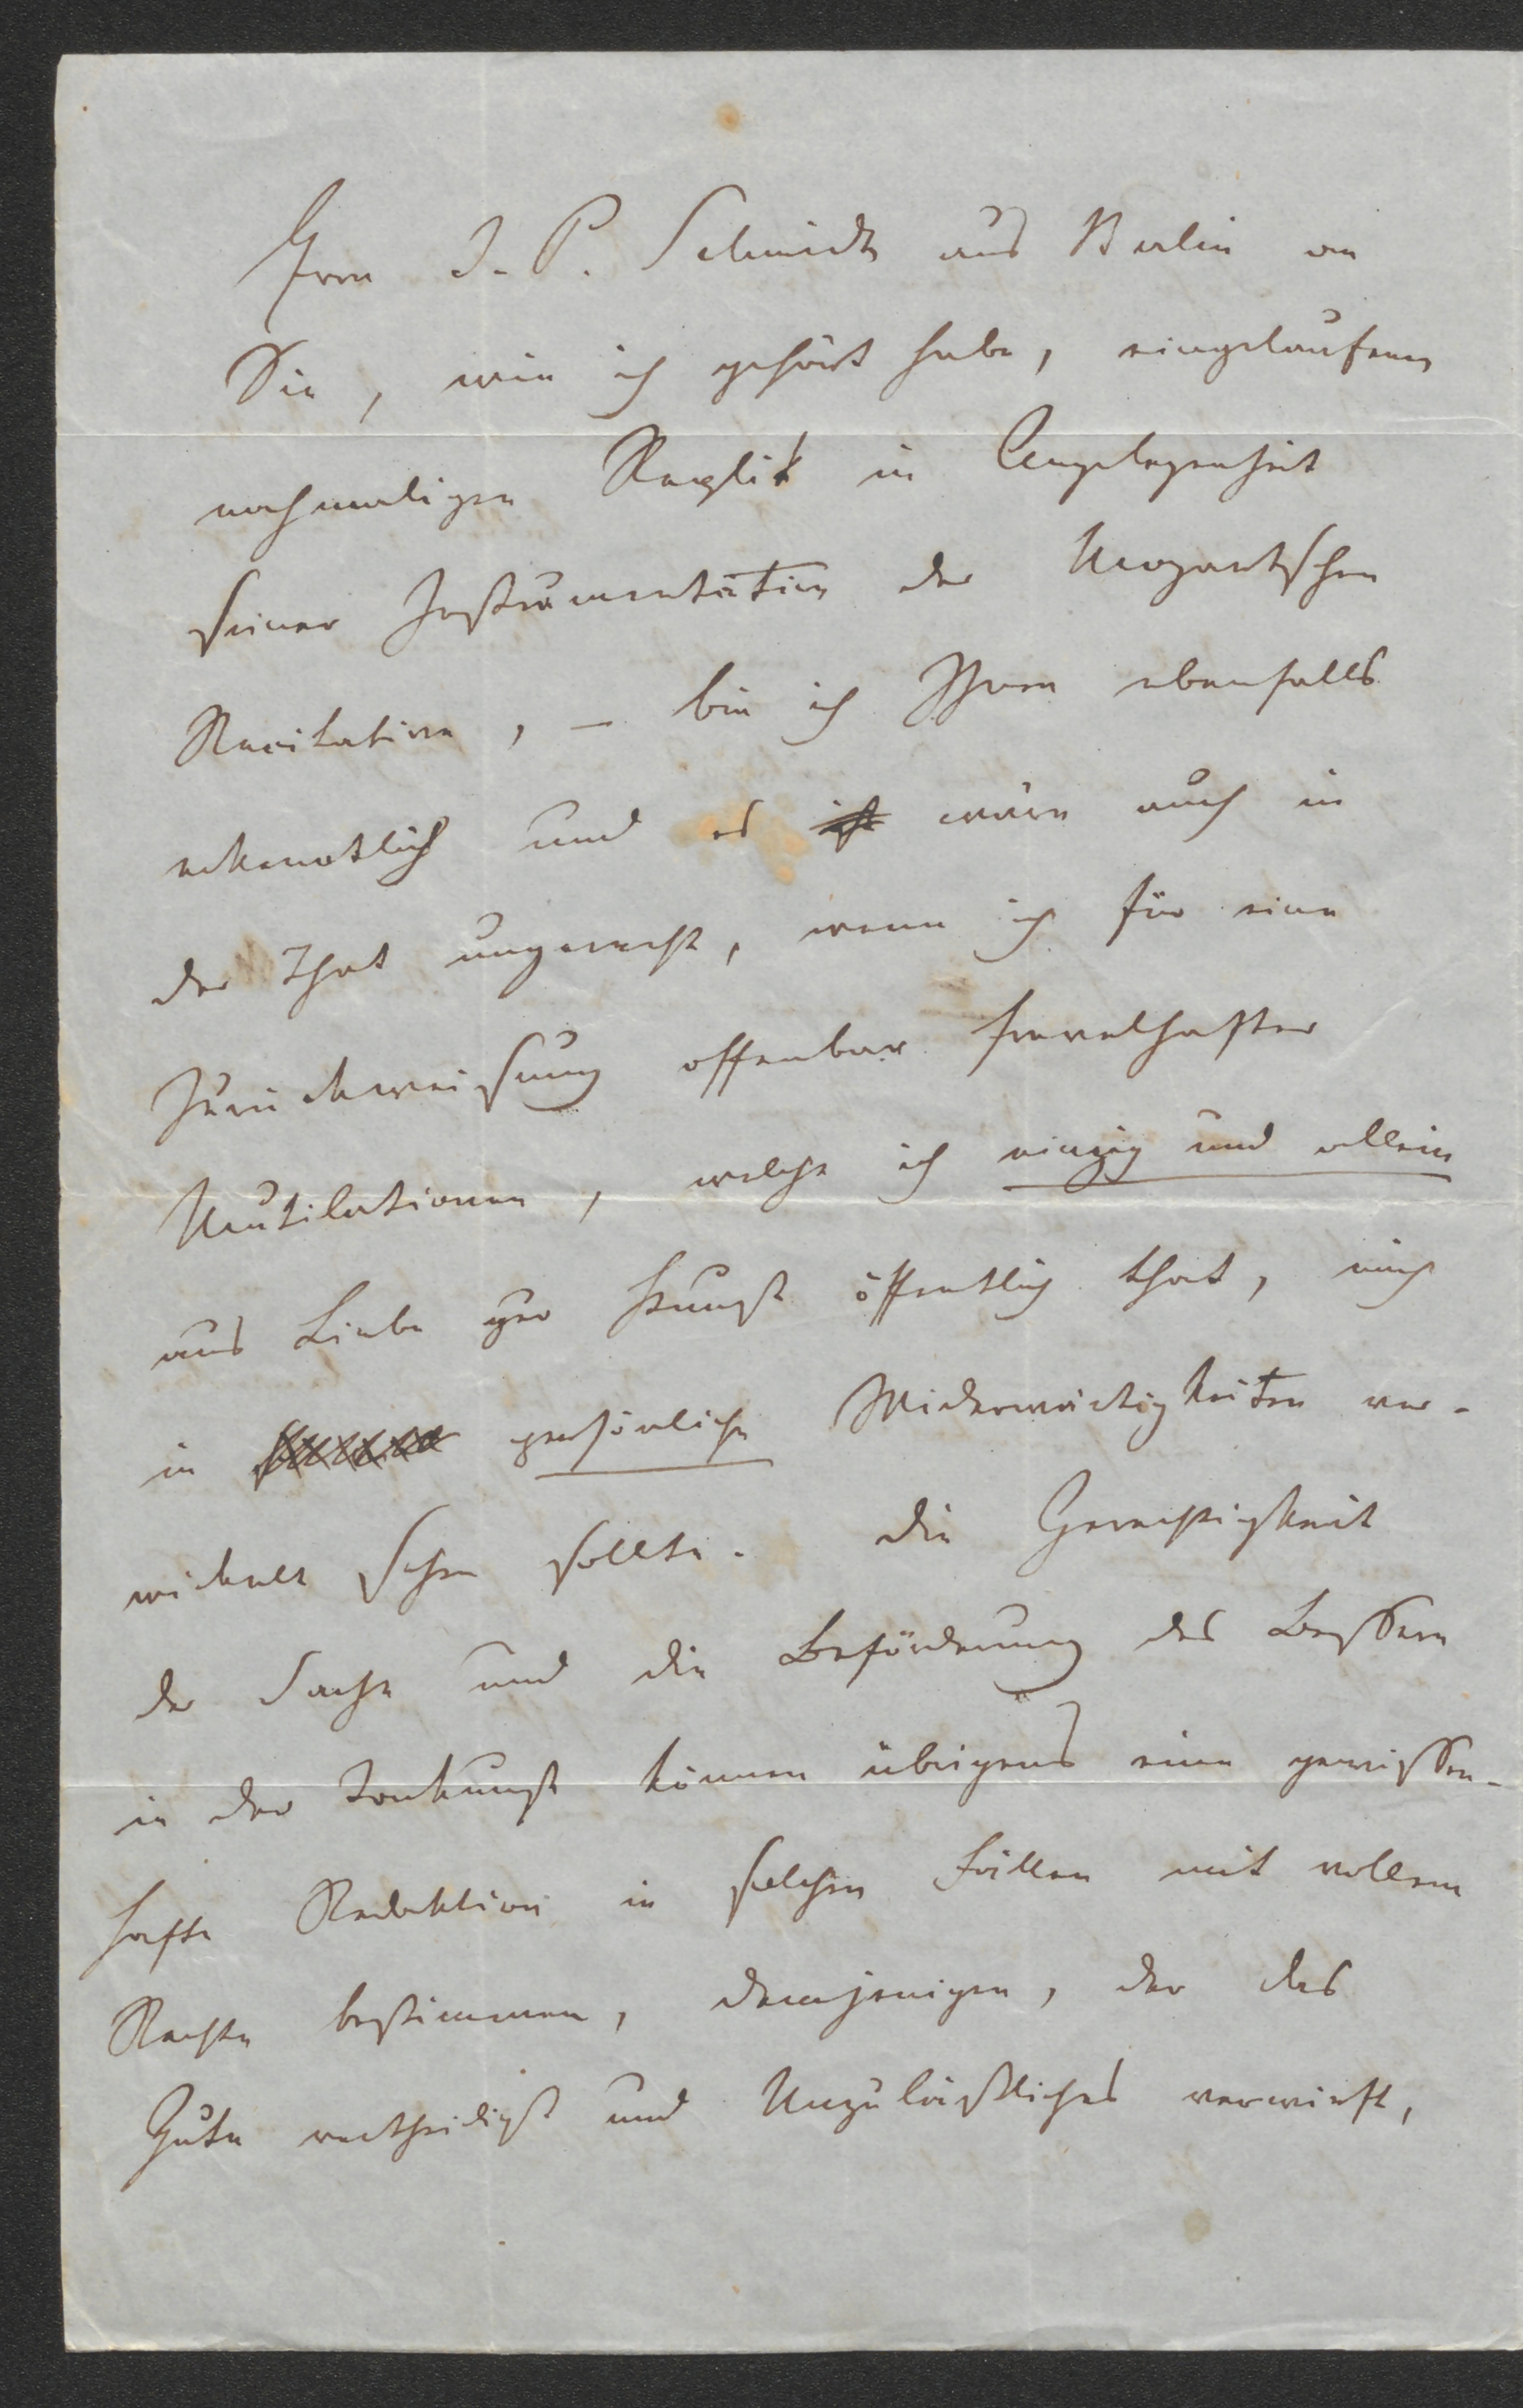 Hrrn J. P. Schmidt aus Berlin an
Sie, wie ich gehört habe, eingelaufenen
nochmaligen Replik in Angelegenheit
seiner Instrumentation der Mozartschen
Recitative, – bin ich Ihnen ebenfalls
erkenntlich und es ist wäre auch in
der That ungerecht, wenn ich für eine
Zurückweisung offenbar frevelhafter
Mutilationen, welche ich einzig und allein
aus Liebe zur Kunst öffentlich that, mich
in persönliche Widerwärtigkeiten ver-
wickelt sehen sollte. Die Gerechtigkeit
der Sache und die Beförderung des Bessern
in der Tonkunst können übrigens eine gewissen-
hafte Redaktion in solchen Fällen mit vollem
Rechte bestimmen, demjenigen, der das
Gute vertheidigt und Unzuläßliches verwirft,